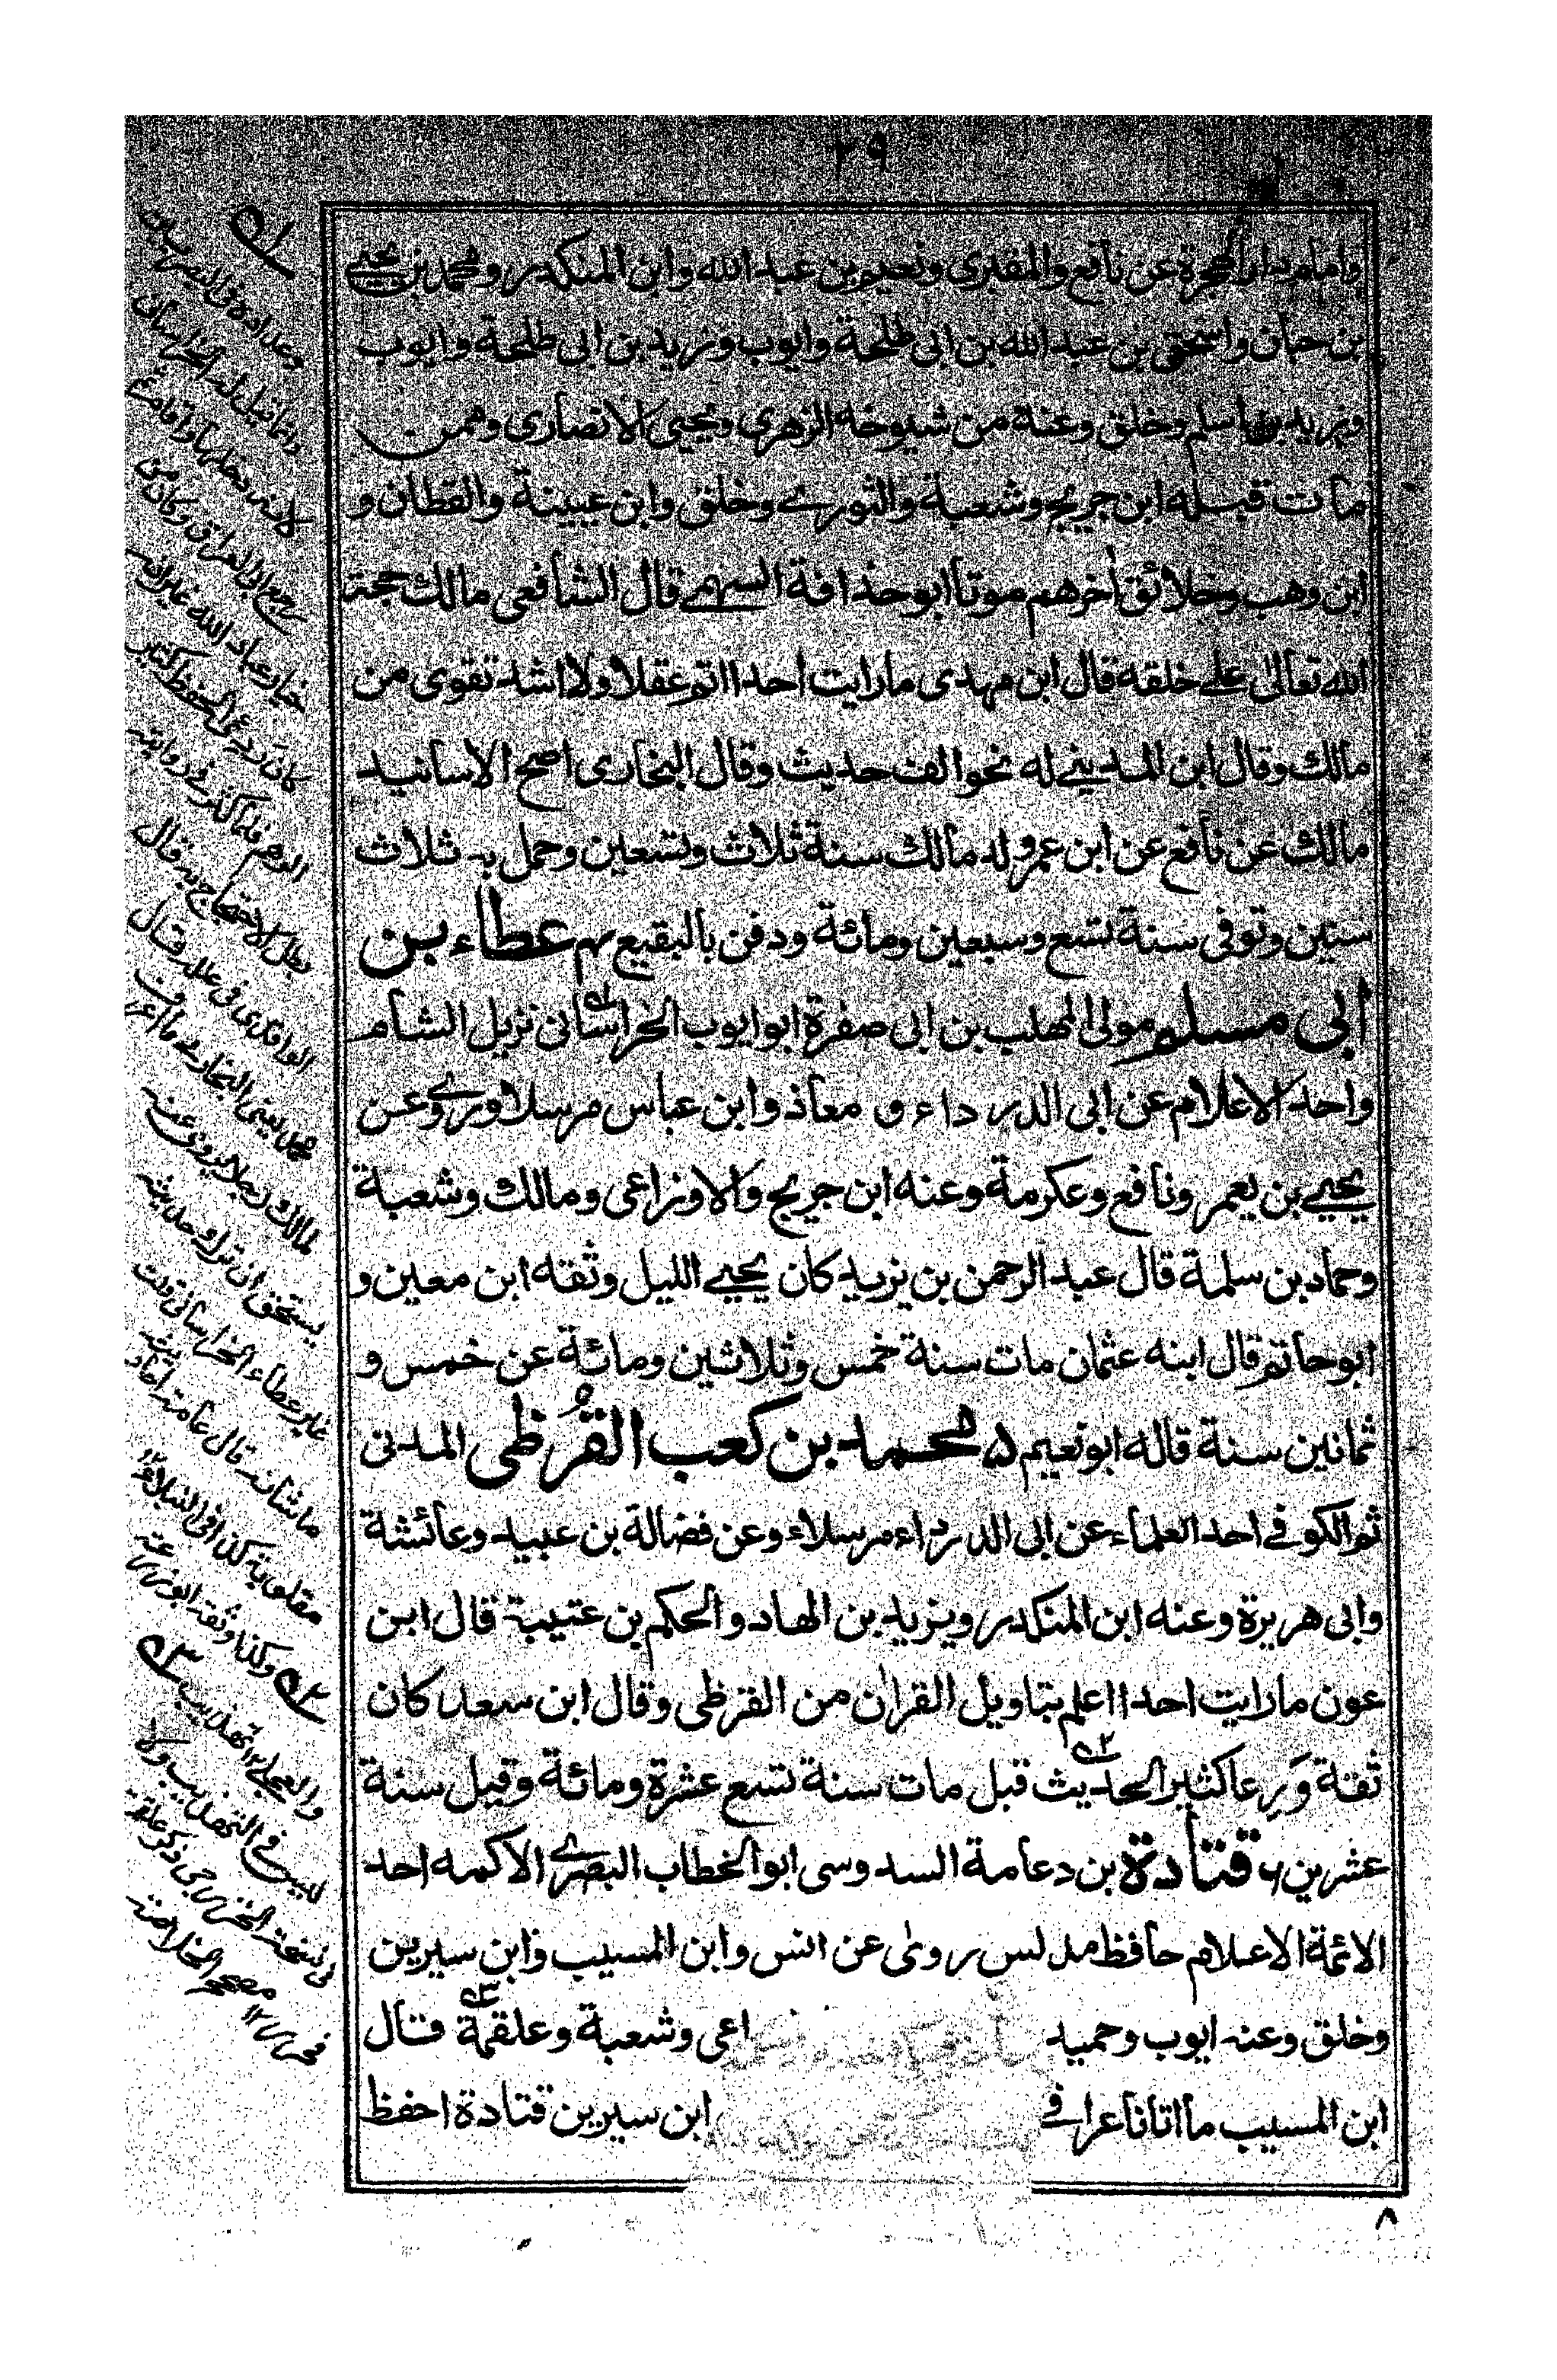 ٢٩
وامام دار الهجرة عن نافع والمقبرى ونعيم بن عبد الله وابن المنكدر ومحمد بن يحيے
بن حبان واسحق بن عبد الله بن ابى طلحة وايوب وزيد بن ابى طلحة وايوب
وزيد بن اسلم وخلق وعنه من شيوخه الزهرى ويحيى الانصارى وممن
مات قبله ابن جريج وشعبة والثورے وخلق وابن عيينة والقطان و
ابن وهب وخلائق اخرهم موتا ابو حذافة السهمے قال الشافعى مالك حجة
الله تعالى علے خلقه قال ابن مهدى مارايت احدا اتم عقلا ولا اشد تقوى من
مالك وقال ابن المدينے له نحو الف حديث وقال البخارى اصح الاسانيد
مالك عن نافع عن ابن عمر ولد مالك سنة ثلاث وتسعين وحمل به ثلاث
سنين وتوفى سنة تسع وسبعين ومائة ودفن بالبقيع ٤ عطاء بن
ابى مسلم مولى المهلب بن ابى صفرة ابو ايوب الخراسانى نزيل الشام
واحد الاعلام عن ابى الدرداء و معاذ وابن عباس مرسلا ورے وعن
يحيے بن يعمر ونافع وعكرمة وعنه ابن جريج والاوزاعى ومالك وشعبة
وحماد بن سلمة قال عبد الرحمن بن يزيد كان يحيے الليل وثقه ابن معين و
ابو حاتم قال ابنه عثمان مات سنة خمس وثلاثين ومائة عن خمس و
ثمانين سنة قاله ابو نعيم ۵ محمد بن كعب القُرظى المدنى
ثم الكوفے احد العلماء عن ابى الدرداء مرسلاء وعن فضالة بن عبيد وعائشة
وابى هريرة وعنه ابن المنكدر ويزيد بن الهاد والحكم بن عتيبة قال ابن
عون مارايت احدا اعلم بتاويل القران من القرظى وقال ابن سعد كان
ثقة وَرِعا كثير الحديث قيل مات سنة تسع عشرة ومائة وقيل سنة
عشرين ٦ قتادة بن دعامة السدوسى ابو الخطاب البصرے الاكمه احد
الائمة الاعلام حافظ مدلس روى عن انس وابن المسيب وابن سيرين
وخلق وعنه ايوب وحميد اعى وشعبة وعلقمة قال
ابن المسيب ما اتانا عراقے ابن سيرين قتادة احفظ
٨
لمالك رجلا يروى عنه
يستحق ان يترك حديثه
غير عطاء الخراسانى قلت
ما شانه قال عامة احاديثه
مقلوبة كذا فى
وكذا وثقه ابو زرعة
والعجلے ١٢ تهذيب